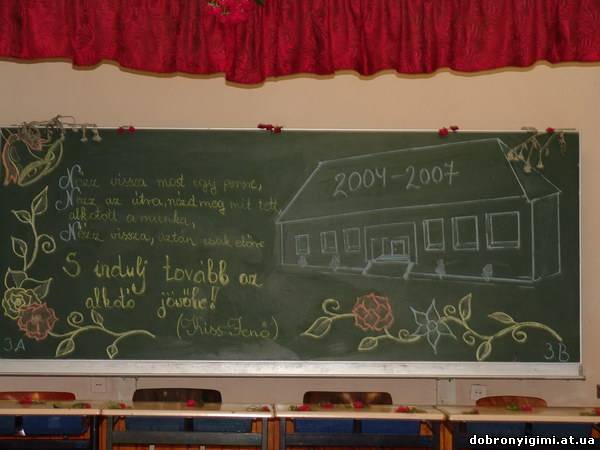 Nézz vissza most egy percre,
Nézz az útra, nézd meg mit tett,
alkotott a munka,
Nézz vissza, aztán csak előre
S indulj tovább az
alkotó jövőbe!
(Kiss Jenő)
2004-2007
3.A
3.B
dobronyigimi.at.ua